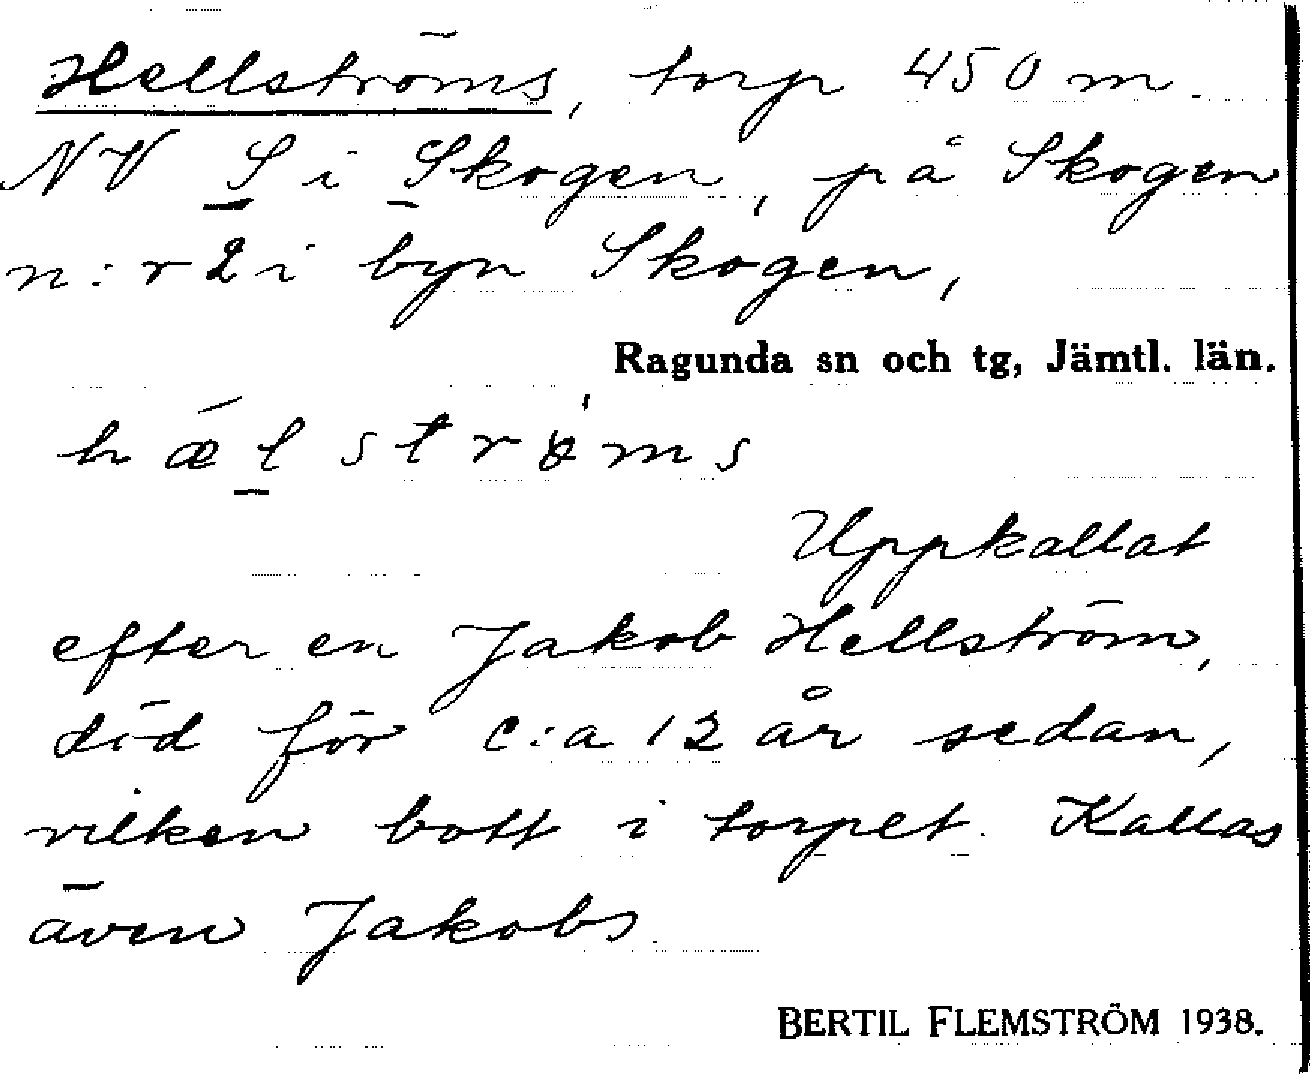 Hellströms, torp 450 m.
NV S i Skogen, på Skogen
n:r 2 i byn Skogen,
Ragunda sn och tg, Jämtl. län.
hǽlstrøms
Uppkallat
efter en Jakob Hellström,
död för c:a 12 år sedan,
vilken bott i torpet. Kallas
även Jakobs.
BERTIL FLEMSTRÖM 1938.